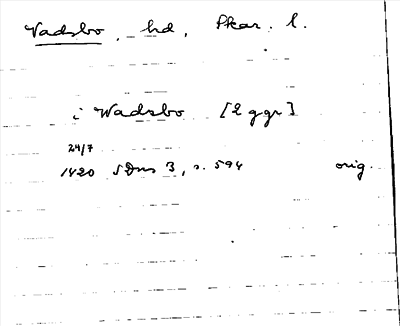 Vadsbo, hd, Skar. l.
i Wadsbo [2 ggr]
24/7
1420 SDns 3, s. 594 orig.